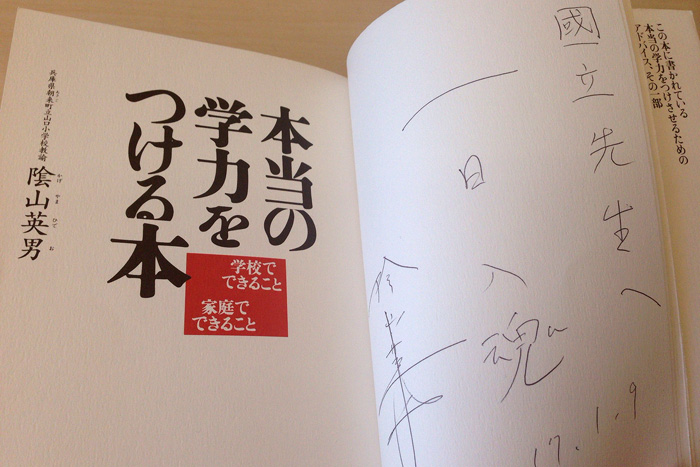 この本に書かれている
本当の学力をつけさせるための
アドバイス、その一部
國立先生へ
一日入魂
17.1.9
陰山英男
本当の
学力を
つける本
学校で
できること
家庭で
できること
兵庫県朝来町立山口小学校教諭
あさご
陰山英男
かげ やま ひで お